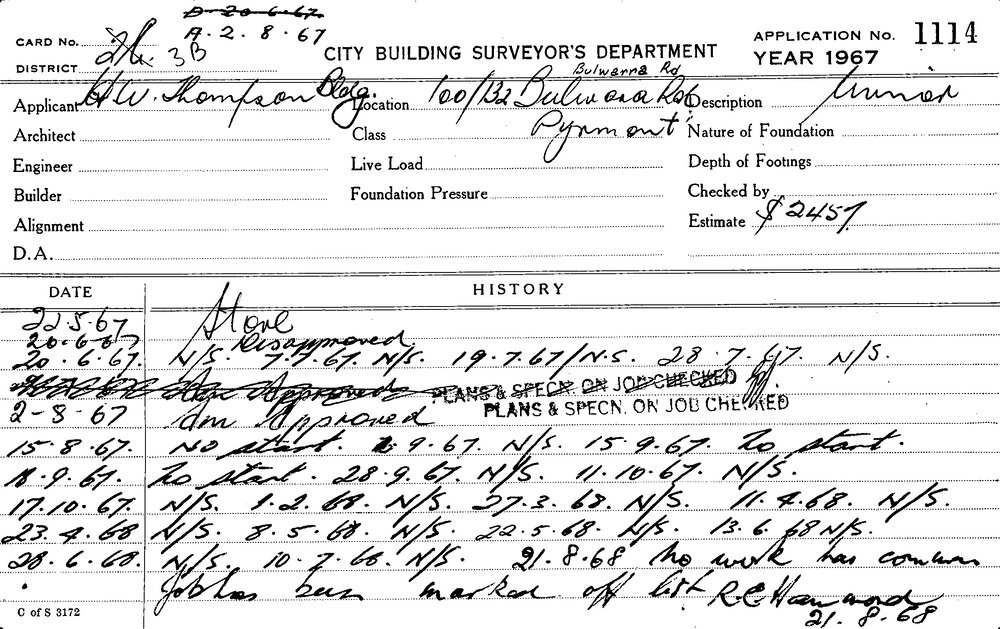 D. 20.6.67.
A. 2. 8. 67
CARD No.
DISTRICT 3B
CITY BUILDING SURVEYOR'S DEPARTMENT
APPLICATION No. 1114
YEAR 1967
Bulwarra Rd
Applicant H.W. Thompson Bldg.
Location 100/132 Bulwara Rd
Description Minor
Architect
Class Pyrmont
Nature of Foundation
Engineer
Live Load
Depth of Footings
Builder
Foundation Pressure
Checked by
Alignment
Estimate $2457
D.A.
DATE HISTORY
22.5.67 Store
20.6.67 Disapproved
20.6.67. N/S. 7.7.67. N/S. 19.7.67/N.S. 28.7.67. N/S.
Approved PLANS & SPECN. ON JOB CHECKED
2-8-67 Am Approved PLANS & SPECN. ON JOB CHECKED
15.8.67. No start. 1.9.67. N/S. 15.9.67. No start.
18.9.67. No start. 28.9.67. N/S. 11.10.67. N/S.
17.10.67. N/S. 1.2.68. N/S. 27.3.68. N/S. 11.4.68. N/S.
23.4.68 N/S. 8.5.68. N/S. 22.5.68. N/S. 13.6.68 N/S.
28.6.68. N/S. 10.7.68. N/S. 21.8.68 No work has commen
Job has been marked off list R C Hammond
21.8.68
C of S 3172